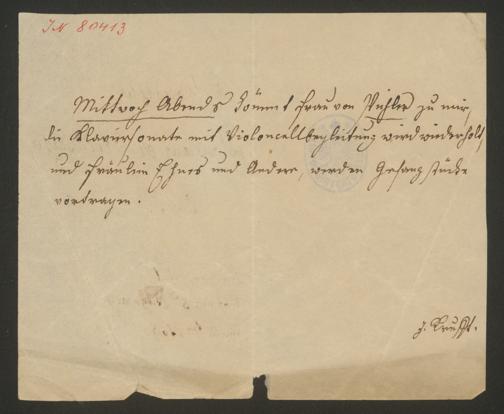 IN 80413
Mittwoch Abends kömmt Frau von Pichler zu mir,
die Klaviersonate mit Violoncellbegleitung wird wiederholt
und Fräulein und Andere, werden Gesangstücke
vortragen.